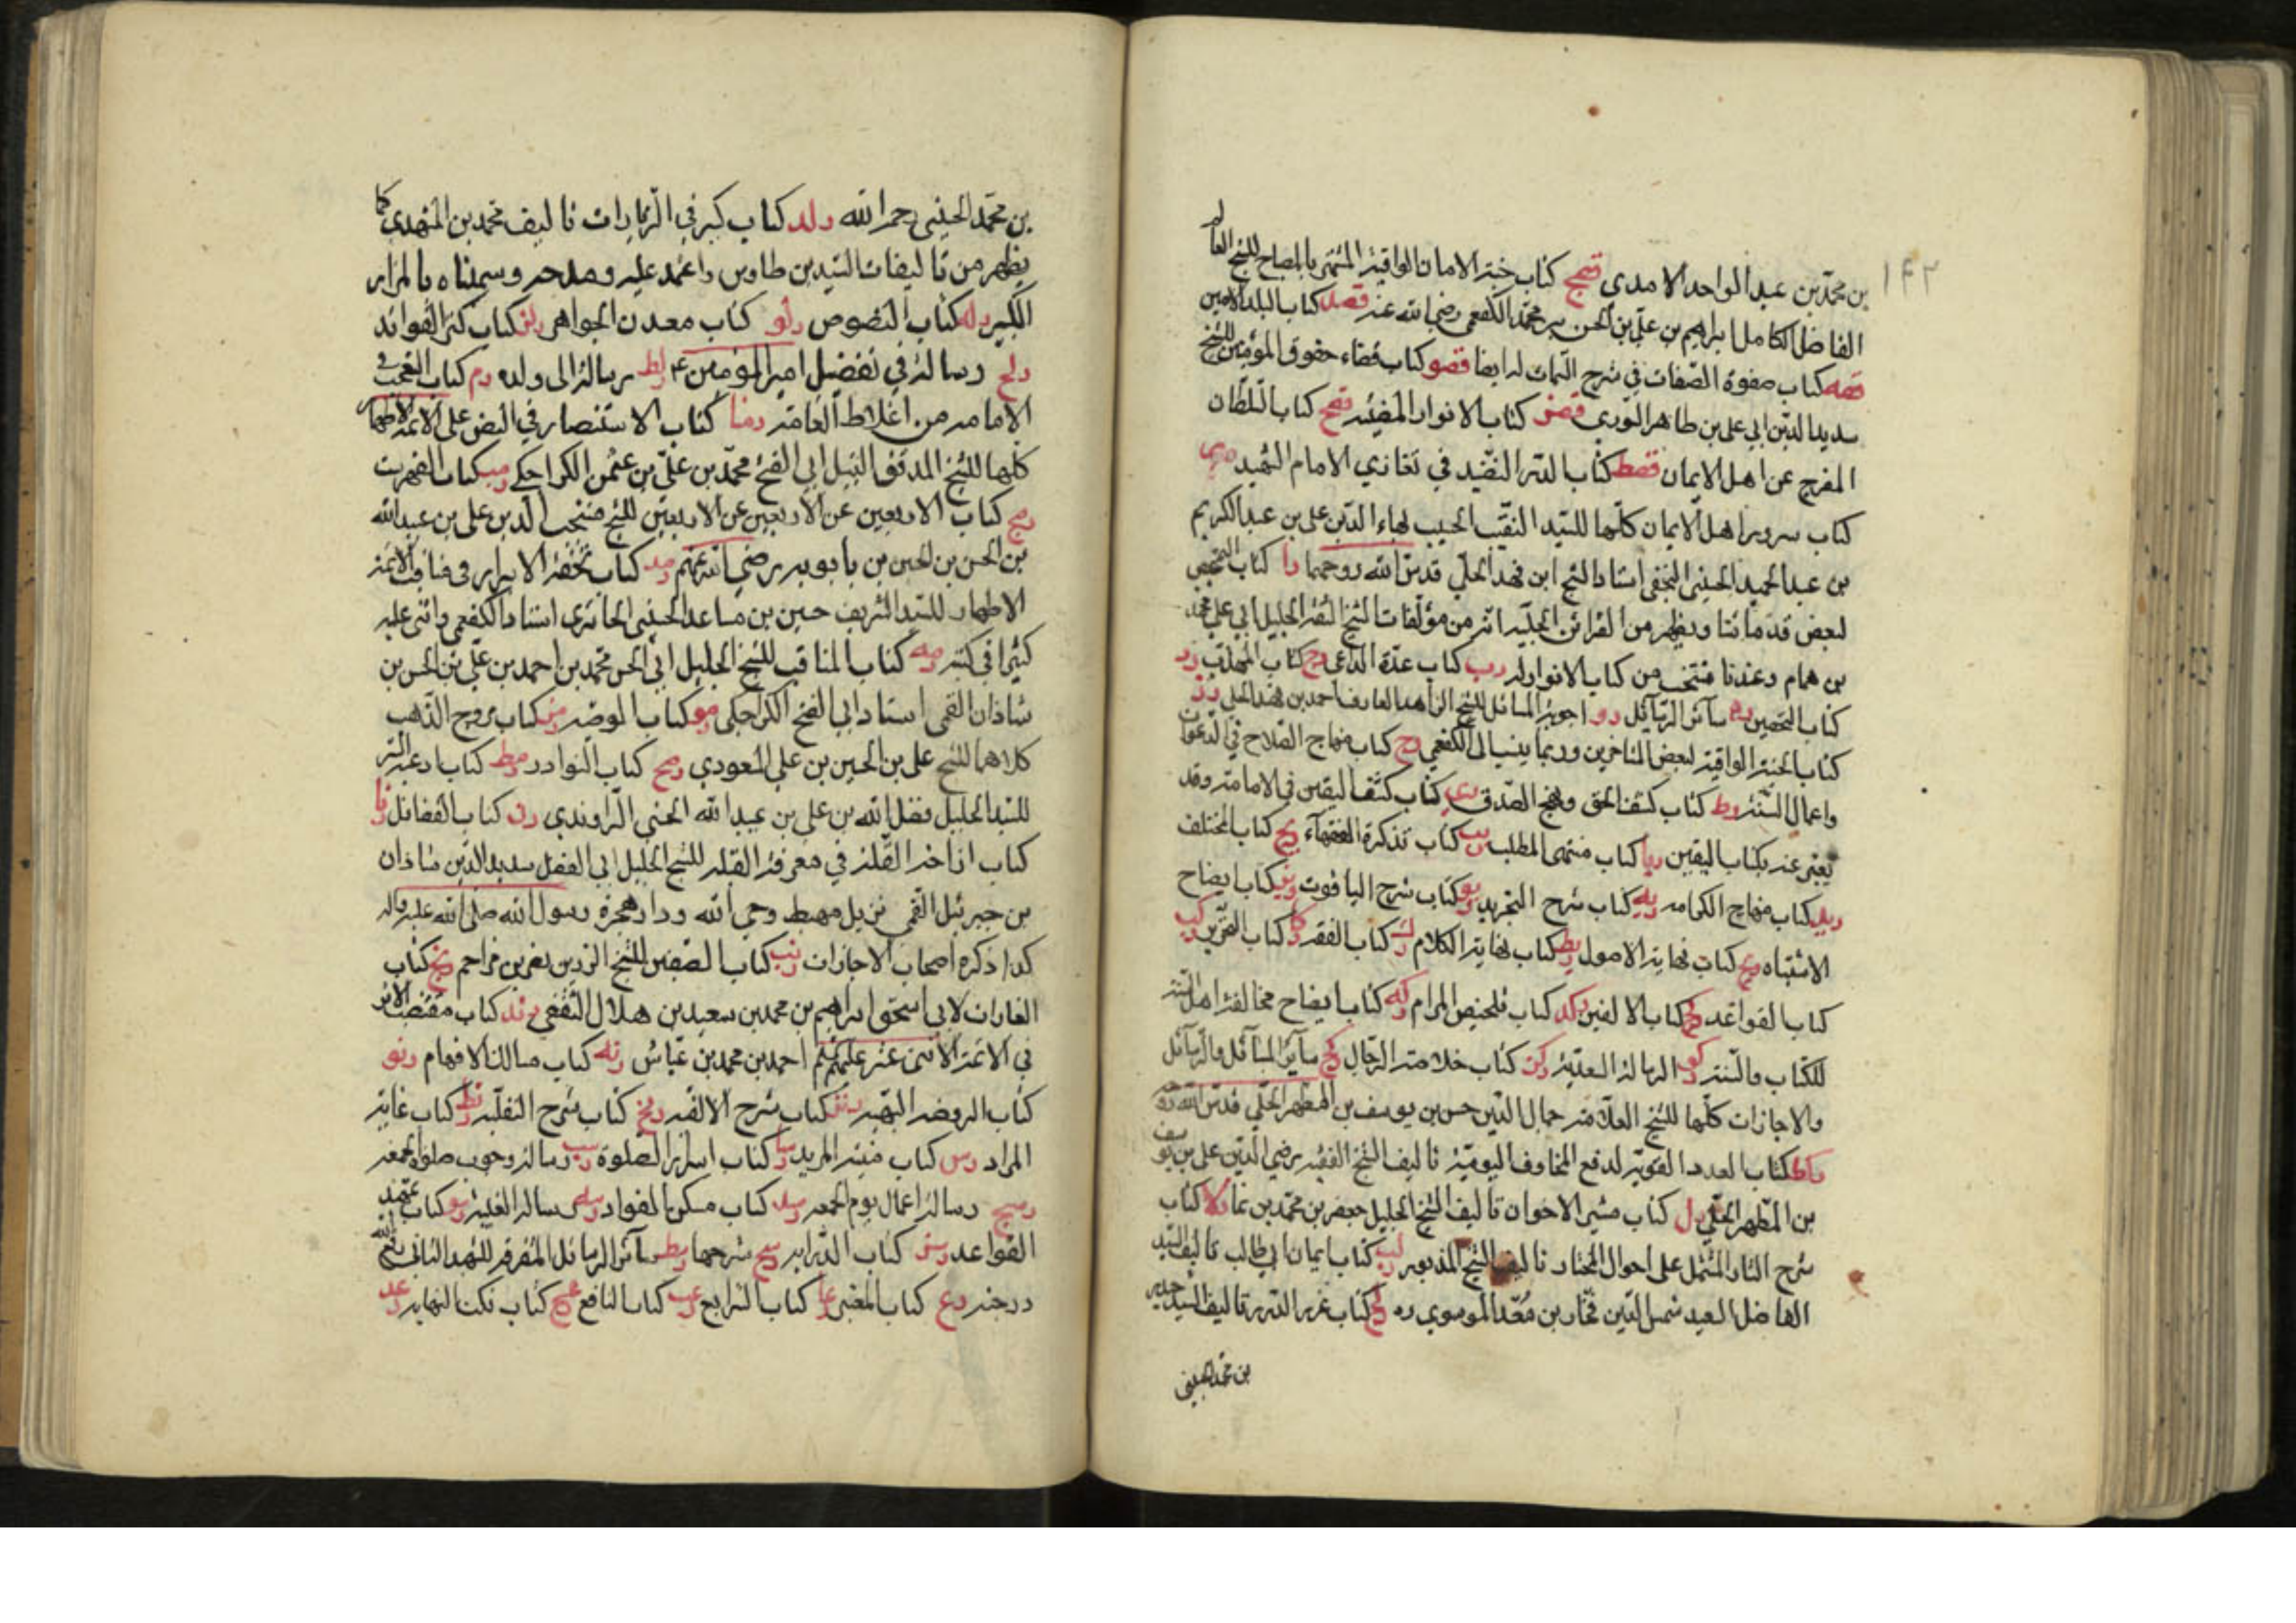 ١٤٢
بن محمد بن عبد الواحد الامدي قسج كتاب جنة الامان الواقية المشتهر بالمصباح للشيخ العالم
الفاضل الكامل ابراهيم بن علي بن الحسن بن محمد الكفعمي رضي الله عنه قسد كتاب البلد الامين
قسه كتاب صفوة الصفات في شرح السمات له ايضا قسو كتاب قضاء حقوق المؤمنين للشيخ
سديد الدين ابي علي بن طاهر السوري قسز كتاب الانوار المضيئه قسح كتاب السلطان
المفرج عن اهل الايمان قسط كتاب الدر النضيد في تغازي الامام الشهيد
كتاب سرور اهل الايمان كلها للسيد النقيب الحسيب بهاء الدين علي بن عبد الكريم
بن عبد الحميد الحسيني النجفي استاد الشيخ ابن فهد الحلي قدس الله روحهما را كتاب التمحيص
لبعض قدمائنا ويظهر من القرائن الجلية انه من مؤلفات الشيخ الثقة الجليل ابي علي محمد
بن همام وعندنا منتخب من كتاب الانوار له رب كتاب عدة الداعي رج كتاب المهذب رد
كتاب التحصين ره سائر الرسائل رو اجوبة المسائل للشيخ الزاهد العارف احمد بن فهد الحلي رز
كتاب الجنة الواقية لبعض المتاخرين وربما ينسب الى الكفعمي رح كتاب منهاج الصلاح في الدعوات
واعمال السنة رط كتاب كشف الحق ونهج الصدق ري كتاب كشف اليقين في الامامة وقد
يعبر عنه بكتاب اليقين ريا كتاب منتهى المطلب يب كتاب تذكرة الفقهاء يج كتاب المختلف
ريد كتاب منهاج الكرامه ريه كتاب شرح التجريد ريو كتاب شرح الياقوت ريز كتاب ايضاح
الاشتباه ريح كتاب نهاية الاصول ريط كتاب نهاية الكلام رك كتاب الفقه ركا كتاب التحرير ركب
كتاب القواعد ركج كتاب الالفين ركد كتاب تلخيص المرام ركه كتاب ايضاح مخالفة اهل السنة
للكتاب والسنة ركو الرسالة السعدية ركز كتاب خلاصة الرجال ركح سائر المسائل والرسائل
والاجازات كلها للشيخ العلامة جمال الدين حسن بن يوسف بن المطهر الحلي قدس الله روحه
ركط كتاب العدد القوية لدفع المخاوف اليومية تاليف الشيخ الفقيه رضي الدين علي بن يوسف
بن المطهر الحلي رل كتاب مثير الاحزان تاليف الشيخ الجليل جعفر بن محمد بن نما رلا كتاب
شرح الثار المشتمل على احوال المختار تاليف الشيخ المذبور رلب كتاب ايمان ابي طالب تاليف السيد
الفاضل السعيد شمس الدين فخار بن معد الموسوي ره رلج كتاب غرر الدرر تاليف السيد حيدر
بن محمد الحسيني
بن محمد الحسيني رحمه الله رلد كتاب كبير في الزيارات تاليف محمد بن المشهدي كما
يظهر من تاليفات السيد بن طاوس واعتمد عليه ومدحه وسميناه بالمزار
الكبير رله كتاب النصوص رلو كتاب معدن الجواهر رلز كتاب كنز الفوائد
رلح رسالة في تفضيل امير المؤمنين ع رلط رسالة الى ولده رم كتاب التعجب في
الامامه من اغلاط العامة رما كتاب الاستنصار في النص على الائمة الاطهار
كلها للشيخ المدقق النبيل ابي الفتح محمد بن علي بن عثمن الكراجكي رمب كتاب الفهرست
رمج كتاب الاربعين عن الاربعين عن الاربعين للشيخ منتجب الدين علي بن عبيد الله
بن الحسن بن الحسين بن بابويه رضي الله عنهم رمد كتاب تحفة الابرار في مناقب الائمة
الاطهار للسيد الشريف حسين بن مساعد الحسيني الحائري استاد الكفعمي واثنى عليه
كثيرا في كتبه رمه كتاب المناقب للشيخ الجليل ابي الحسن محمد بن احمد بن علي بن الحسن بن
شاذان القمي استاد ابي الفتح الكراجكي رمو كتاب الوصية رمز كتاب مروج الذهب
كلاهما للشيخ علي بن الحسين بن علي المسعودي رمح كتاب النوادر رمط كتاب ادعية السر
للسيد الجليل فضل الله بن علي بن عبيد الله الحسني الراوندي رن كتاب الفضائل رنا
كتاب ازاحة العلة في معرفة القبله للشيخ الجليل ابي الفضل سديد الدين شاذان
بن جبرئيل القمي نزيل مهبط وحي الله ودار هجرة رسول الله صلى الله عليه واله
كذا ذكره اصحاب الاجازات رنب كتاب الصفين للشيخ الرزين نصر بن مزاحم رنج كتاب
الغارات لابي اسحق ابراهيم بن محمد بن سعيد بن هلال الثقفي رند كتاب مقتضب الاثر
في الائمة الاثنى عشر عليهم السلم احمد بن محمد بن عياش رنه كتاب مسالك الافهام رنو
كتاب الروضه البهيه رنز كتاب شرح الالفيه رنح كتاب شرح النفلية رنط كتاب غاية
المراد رس كتاب منية المريد رسا كتاب اسرار الصلوة رسب رسالة وجوب صلوة الجمعة
رسج رسالة اعمال يوم الجمعه رسد كتاب مسكن الفواد رسه رسالة الغيبة رسو كتاب تمهيد
القواعد رسز كتاب الدرايه رسح شرحها رسط سائر الرسائل المتفرقه للشهيد الثاني رفع الله
درجته رع كتاب المعتبر رعا كتاب الشرايع رعب كتاب النافع رعج كتاب نكت النهايه رعد